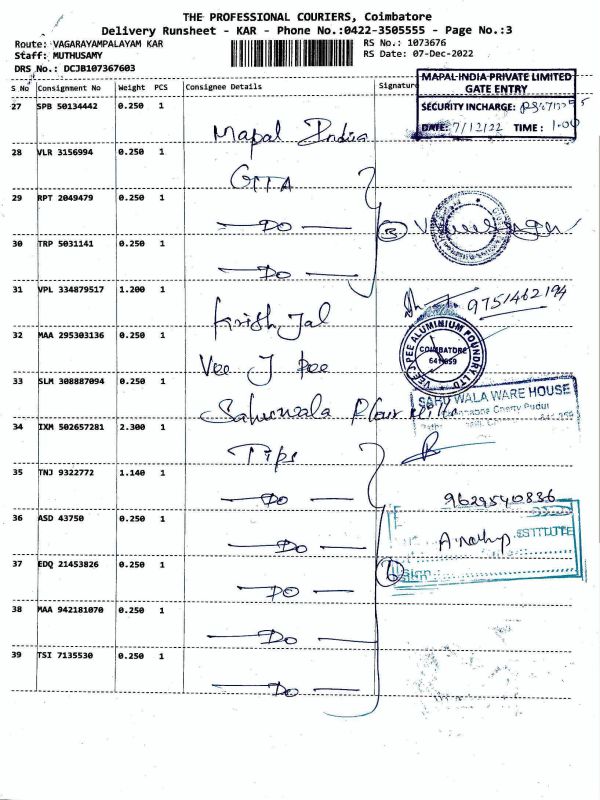 THE PROFESSIONAL COURIERS, Coimbatore
Delivery Runsheet - KAR - Phone No.:0422-3505555 - Page No.:3
Route: VAGARAYAMPALAYAM KAR
RS No.: 1073676
Staff: MUTHUSAMY
RS Date: 07-Dec-2022
DRS No.: DCJB107367603
S No Consignment No Weight PCS Consignee Details Signature
MAPAL INDIA PRIVATE LIMITED
GATE ENTRY
SECURITY INCHARGE:
DATE: 7/12/22 TIME: 1.00
27 SPB 50134442 0.250 1 Mapal India
28 VLR 3156994 0.250 1 GTTA
29 RPT 2049479 0.250 1 — Do —
3
30 TRP 5031141 0.250 1 — Do —
31 VPL 334879517 1.200 1 Krish Jal
9751462194
32 MAA 295303136 0.250 1 Vee J Pee
VEE J PEE ALUMINIUM FOUNDRY LTD
COIMBATORE
641 659
33 SLM 308887094 0.250 1 Sahuwala Flour Mills
WALA WARE HOUSE
34 IXM 502657281 2.300 1 Tips
35 TNJ 9322772 1.140 1 — Do —
9629540836
36 ASD 43750 0.250 1 — Do —
37 EDQ 21453826 0.250 1 — Do —
6
38 MAA 942181070 0.250 1 — Do —
39 TSI 7135530 0.250 1 — Do —